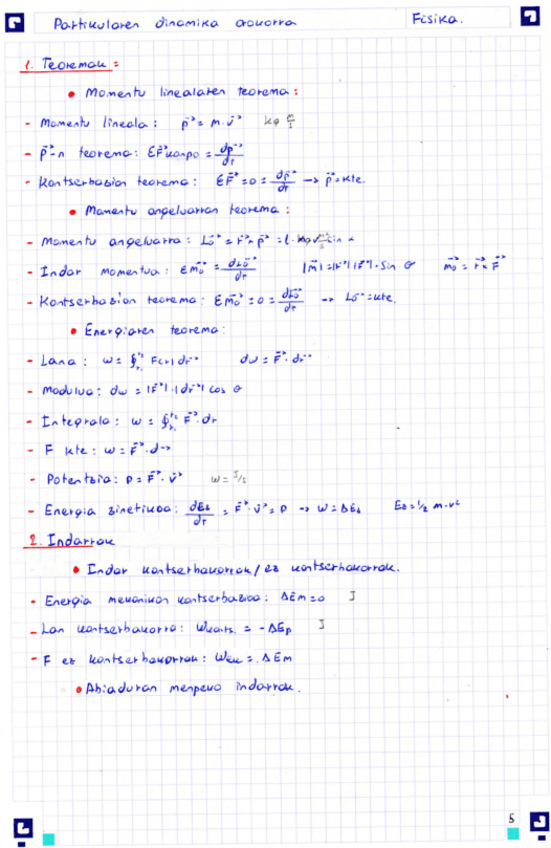 Partikularen dinamika orokorra Fisika.
1. Teoremak :
• Momentu linealaren teorema :
- Momentu lineala : p⃗ = m · v⃗ kg m/s
- p⃗-n teorema : ΣF⃗kanpo = dp⃗/dt
- Kontserbazion teorema : ΣF⃗ = 0 = dp⃗/dt → p⃗ = kte.
• Momentu angeluarran teorema :
- Momentu angeluarra : L₀⃗ = r⃗ × p⃗ =
- Indar momentua : Σm₀⃗ = dL₀⃗/dt |m⃗| = |r⃗| |F⃗| · sin θ m₀⃗ = r⃗ × F⃗
- Kontserbazion teorema : Σm₀⃗ = 0 = dL₀⃗/dt → L₀⃗ = kte.
• Energiaren teorema :
- Lana : w = F(r) dr⃗ dw = F⃗ · dr⃗
- Modulua : dw = |F⃗| · |dr⃗| cos θ
- Integrala : w = F⃗ · dr
- F kte : w = F⃗ · d⃗
- Potentzia : P = F⃗ · v⃗ w = J/s
- Energia zinetikoa : = F⃗ · v⃗ = P → w = Ez = 1/2 m · v²
2. Indarrak
• Indar kontserbakorrak / ez kontserbakorrak.
- Energia mekanikon kontserbazioa : ΔEm = 0 J
- Lan kontserbakorra : Wkonts. = - ΔEp J
- F ez kontserbakorrak : = ΔEm
• Abiaduran menpeko indarrak.
5